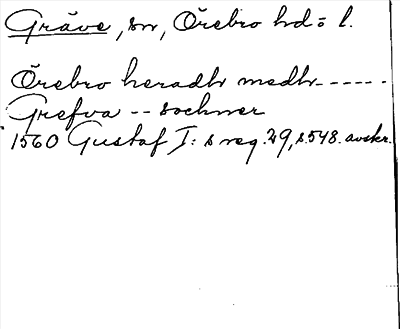 Gräve, sn, Örebro hd o l.
Örebro heradh medh - - - - -
Grefva - - sochner
1560 Gustaf I:s reg. 29, s. 548. avskr.